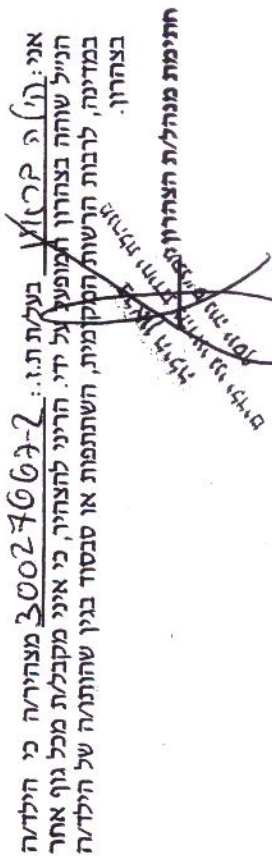 אני: בעל/ת ת.ז.: 30027667-2 מצהיר/ה כי הילד/ה
הנ״ל שוהה בצהרון המופעל על ידי. הריני להצהיר, כי איני מקבל/ת מכל גוף אחר
במדינה, לרבות הרשויות המקומיות, השתתפות או סבסוד בגין שהותו/ה של הילד/ה
בצהרון.
חתימת מנהל/ת הצהרון